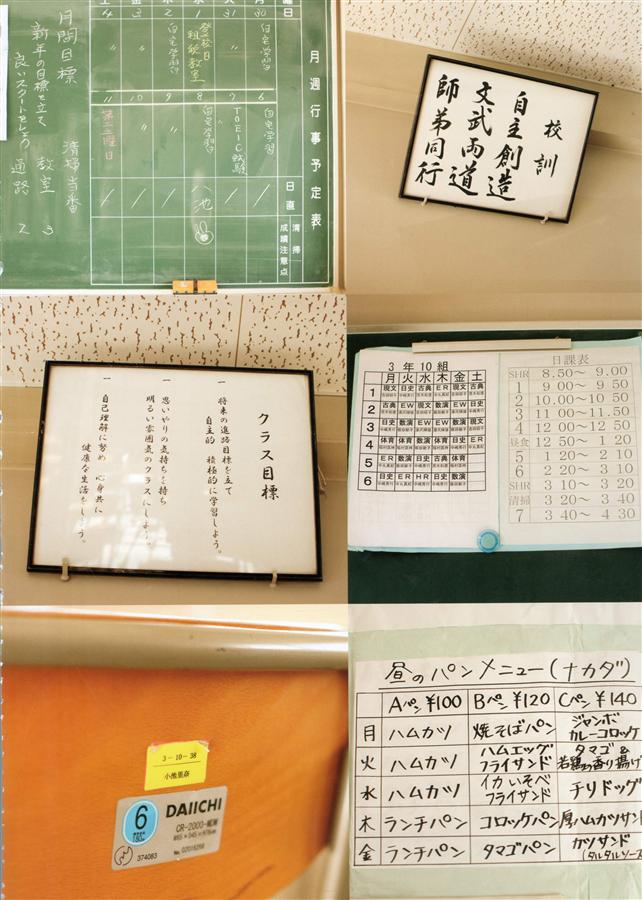 月週行事予定表
曜日
日直
清掃
成績注意点
30
自宅学習
31
〃
1
登校日
租税教室
2
自宅学習
3
〃
4
〃
6
自宅学習
7
TOEIC試験
8
自宅学習
9
〃
10
〃
第二土曜日
月間目標
新年の目標を立て
良いスタートをしよう
清掃当番
教室 3
通路 2
校訓
自主創造
文武両道
師弟同行
クラス目標
一 将来の進路目標を立て
自主的 積極的に学習しよう。
一 思いやりの気持ちを持ち
明るい雰囲気のクラスにしよう。
一 自己理解に努め 心身共に
健康な生活をしよう。
3年10組
月 火 水 木 金 土
1 現文 日史 古典 ER 現文 古典
2 古典 EW 現文 数演 EW 日史
3 日史 数演 EW EW 日史 数演
4 体育 体育 数演 体育 日史 ER
5 ER 数演 日史 古典 体育
6 日史 ER HR 日史 数演
日課表
SHR 8.50～ 9.00
1 9 00～ 9 50
2 10.00～10 50
3 11 00～11.50
4 12 00～12 50
昼食 12 50～ 1 20
5 1 20～ 2 10
6 2 20～ 3 10
SHR 3 10～ 3 20
清掃 3 20～ 3 40
7 3 40～ 4 30
3-10-38
小池里奈
6
TBSC
DAIICHI
CR-2000-MEW
374083
No. 02018268
昼のパンメニュー(ナカダ)
Aパン¥100 Bパン¥120 Cパン¥140
月 ハムカツ 焼そばパン ジャンボカレーコロッケ
火 ハムカツ ハムエッグフライサンド タマゴ&若鶏の香り揚げ
水 ハムカツ イカいそべフライサンド チリドッグ
木 ランチパン コロッケパン 厚ハムカツサンド
金 ランチパン タマゴパン カツサンド(タルタルソース